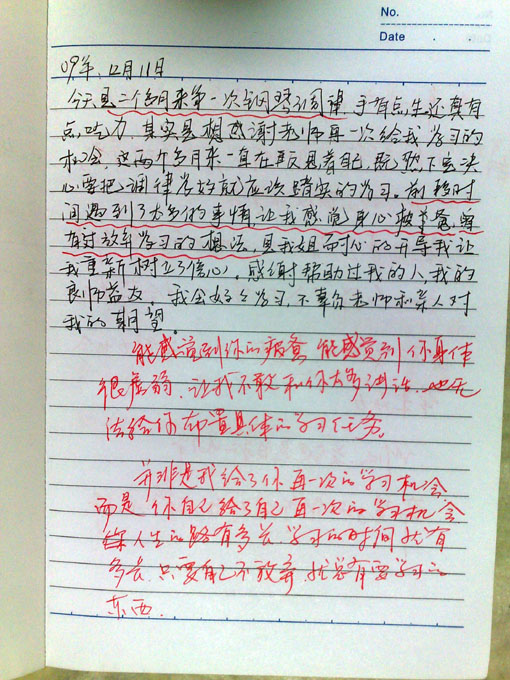 No.
Date
09年.12月11日
今天是二个多月来第一次钢琴调律 手有点生还真有
点吃力，其实是想感谢老师再一次给我学习的
机会，这两个多月来一直在反思着自己，既然下定决
心要把调律学好就应该踏实的学习。前段时
间遇到了太多的事情，让我感觉身心疲惫，曾
有过放弃学习的想法，是我姐耐心的开导我让
我重新树立了信心，感谢帮助过我的人我的
良师益友。我会好好学习，不辜负老师和亲人对
我的期望。
能感觉到你的疲惫 能感觉到你身体
很虚弱，让我不敢和你太多讲话，也无
法给你布置具体的学习任务。
并非是我给了你再一次的学习机会
而是你自己给了自己再一次的学习机会
人生的路有多长 学习的时间就有
多长 只要自己不放弃，就总有要学习的
东西.